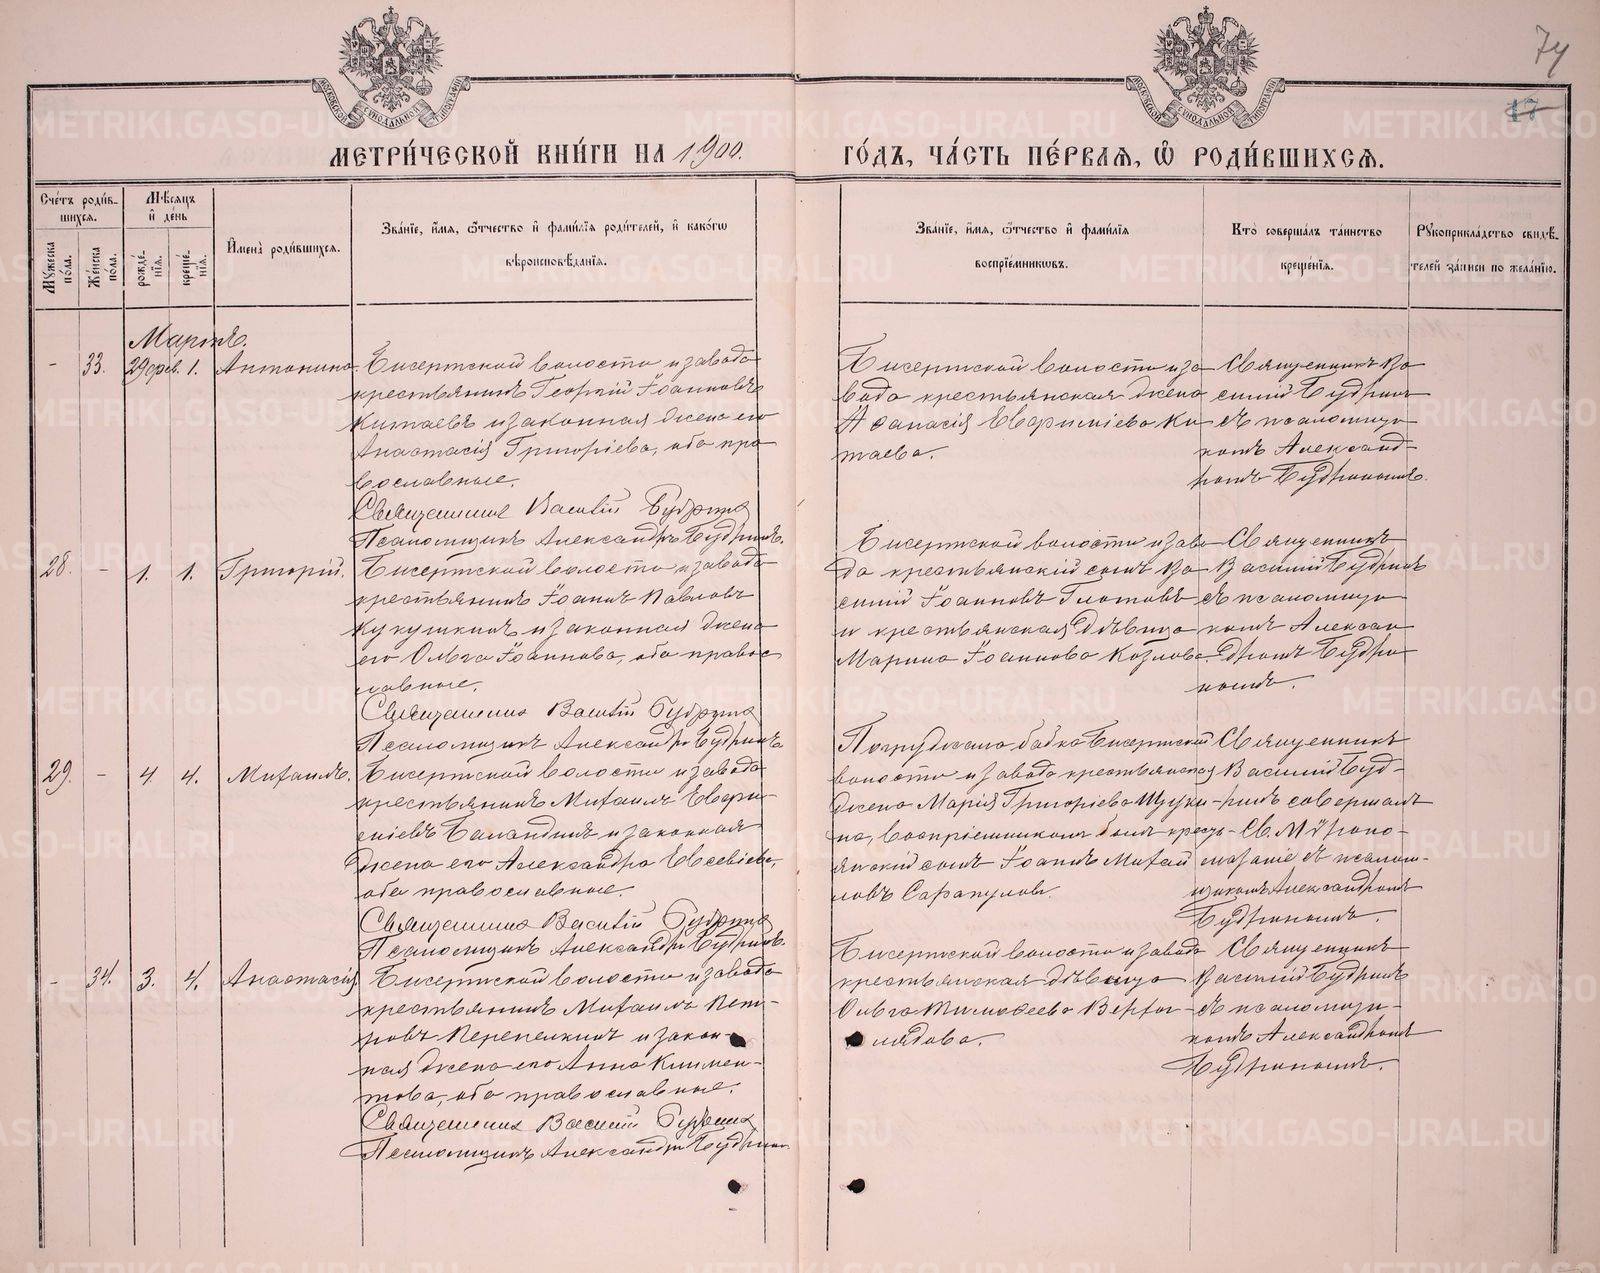 74
17
МЕТРИ́ЧЕСКОЙ КНИ́ГИ НА 1900.
ГО́ДЪ, ЧА́СТЬ ПЕ́РВАЯ, Ѡ҆ РОДИ́ВШИХСЯ.
Сче́тъ роди́в-
шихся.
Мꙋ́жеска по́ла.
Же́нска по́ла.
Мѣ́сяцъ
и҆ де́нь
рожде́-
нїя.
креще́-
нїя.
И҆мена̀ роди́вшихся.
Зва́нїе, и҆́мя, ѻ҆́тчество и҆ фами́лїя роди́телей, и҆ како́гѡ
вѣроисповѣ́данїя.
Зва́нїе, и҆́мя, ѻ҆́тчество и҆ фами́лїя
воспрїе́мникѡвъ.
Кто̀ соверша́лъ та́инство
креще́нїя.
Рꙋкоприкла́дство свидѣ́-
телей за́писи по жела́нїю.
Мартъ.
- 33. 29 фев. 1. Антонина
Бисертской волости и завода
крестьянинъ Георгій Іоанновъ
Китаевъ и законная жена его
Анастасія Григоріева, оба пра-
вославные.
Священникъ Василій Будринъ
Псаломщикъ Александръ Будринъ.
Бисертской волости и за-
вода крестьянская жена
Афанасія Евфиміева Ки-
таева.
Священникъ Ва-
силій Будринъ
съ псаломщи-
комъ Александ-
ромъ Будринымъ.
28. - 1. 1. Григорій.
Бисертской волости и завода
крестьянинъ Іоаннъ Павловъ
Кукушкинъ и законная жена
его Ольга Іоаннова, оба правос-
лавные.
Священникъ Василій Будринъ
Псаломщикъ Александръ Будринъ
Бисертской волости и заво-
да крестьянскій сынъ Ва-
силій Іоанновъ Глотовъ
и крестьянская дѣвица
Марина Іоаннова Козлова.
Священникъ
Василій Будринъ
съ псаломщи-
комъ Алексан-
дромъ Будри-
нымъ.
29. - 4. 4. Михаилъ.
Бисертской волости и завода
крестьянинъ Михаилъ Евфи-
міевъ Баландинъ и законная
жена его Александра Евсевіева,
оба православные.
Священникъ Василій Будринъ
Псаломщикъ Александръ Будринъ.
Погружала бабка Бисертской
волости и завода крестьянская
жена Марія Григоріева Щуки-
на, воспріемникомъ былъ кресть-
янскій сынъ Іоаннъ Михай-
ловъ Сарапуловъ.
Священникъ
Василій Буд-
ринъ совершалъ
Св. Мѵропо-
мазаніе съ псалом-
щикомъ Александромъ
Будринымъ.
- 34. 3. 4. Анастасія
Бисертской волости и завода
крестьянинъ Михаилъ Пет-
ровъ Перепелкинъ и закон-
ная жена его Анна Климен-
това, оба православные.
Священникъ Василій Будринъ
Псаломщикъ Александръ Будринъ.
Бисертской волости и завода
крестьянская дѣвица
Ольга Тимоѳеева Верхог-
лядова.
Священникъ
Василій Будринъ
съ псаломщи-
комъ Александромъ
Будринымъ.